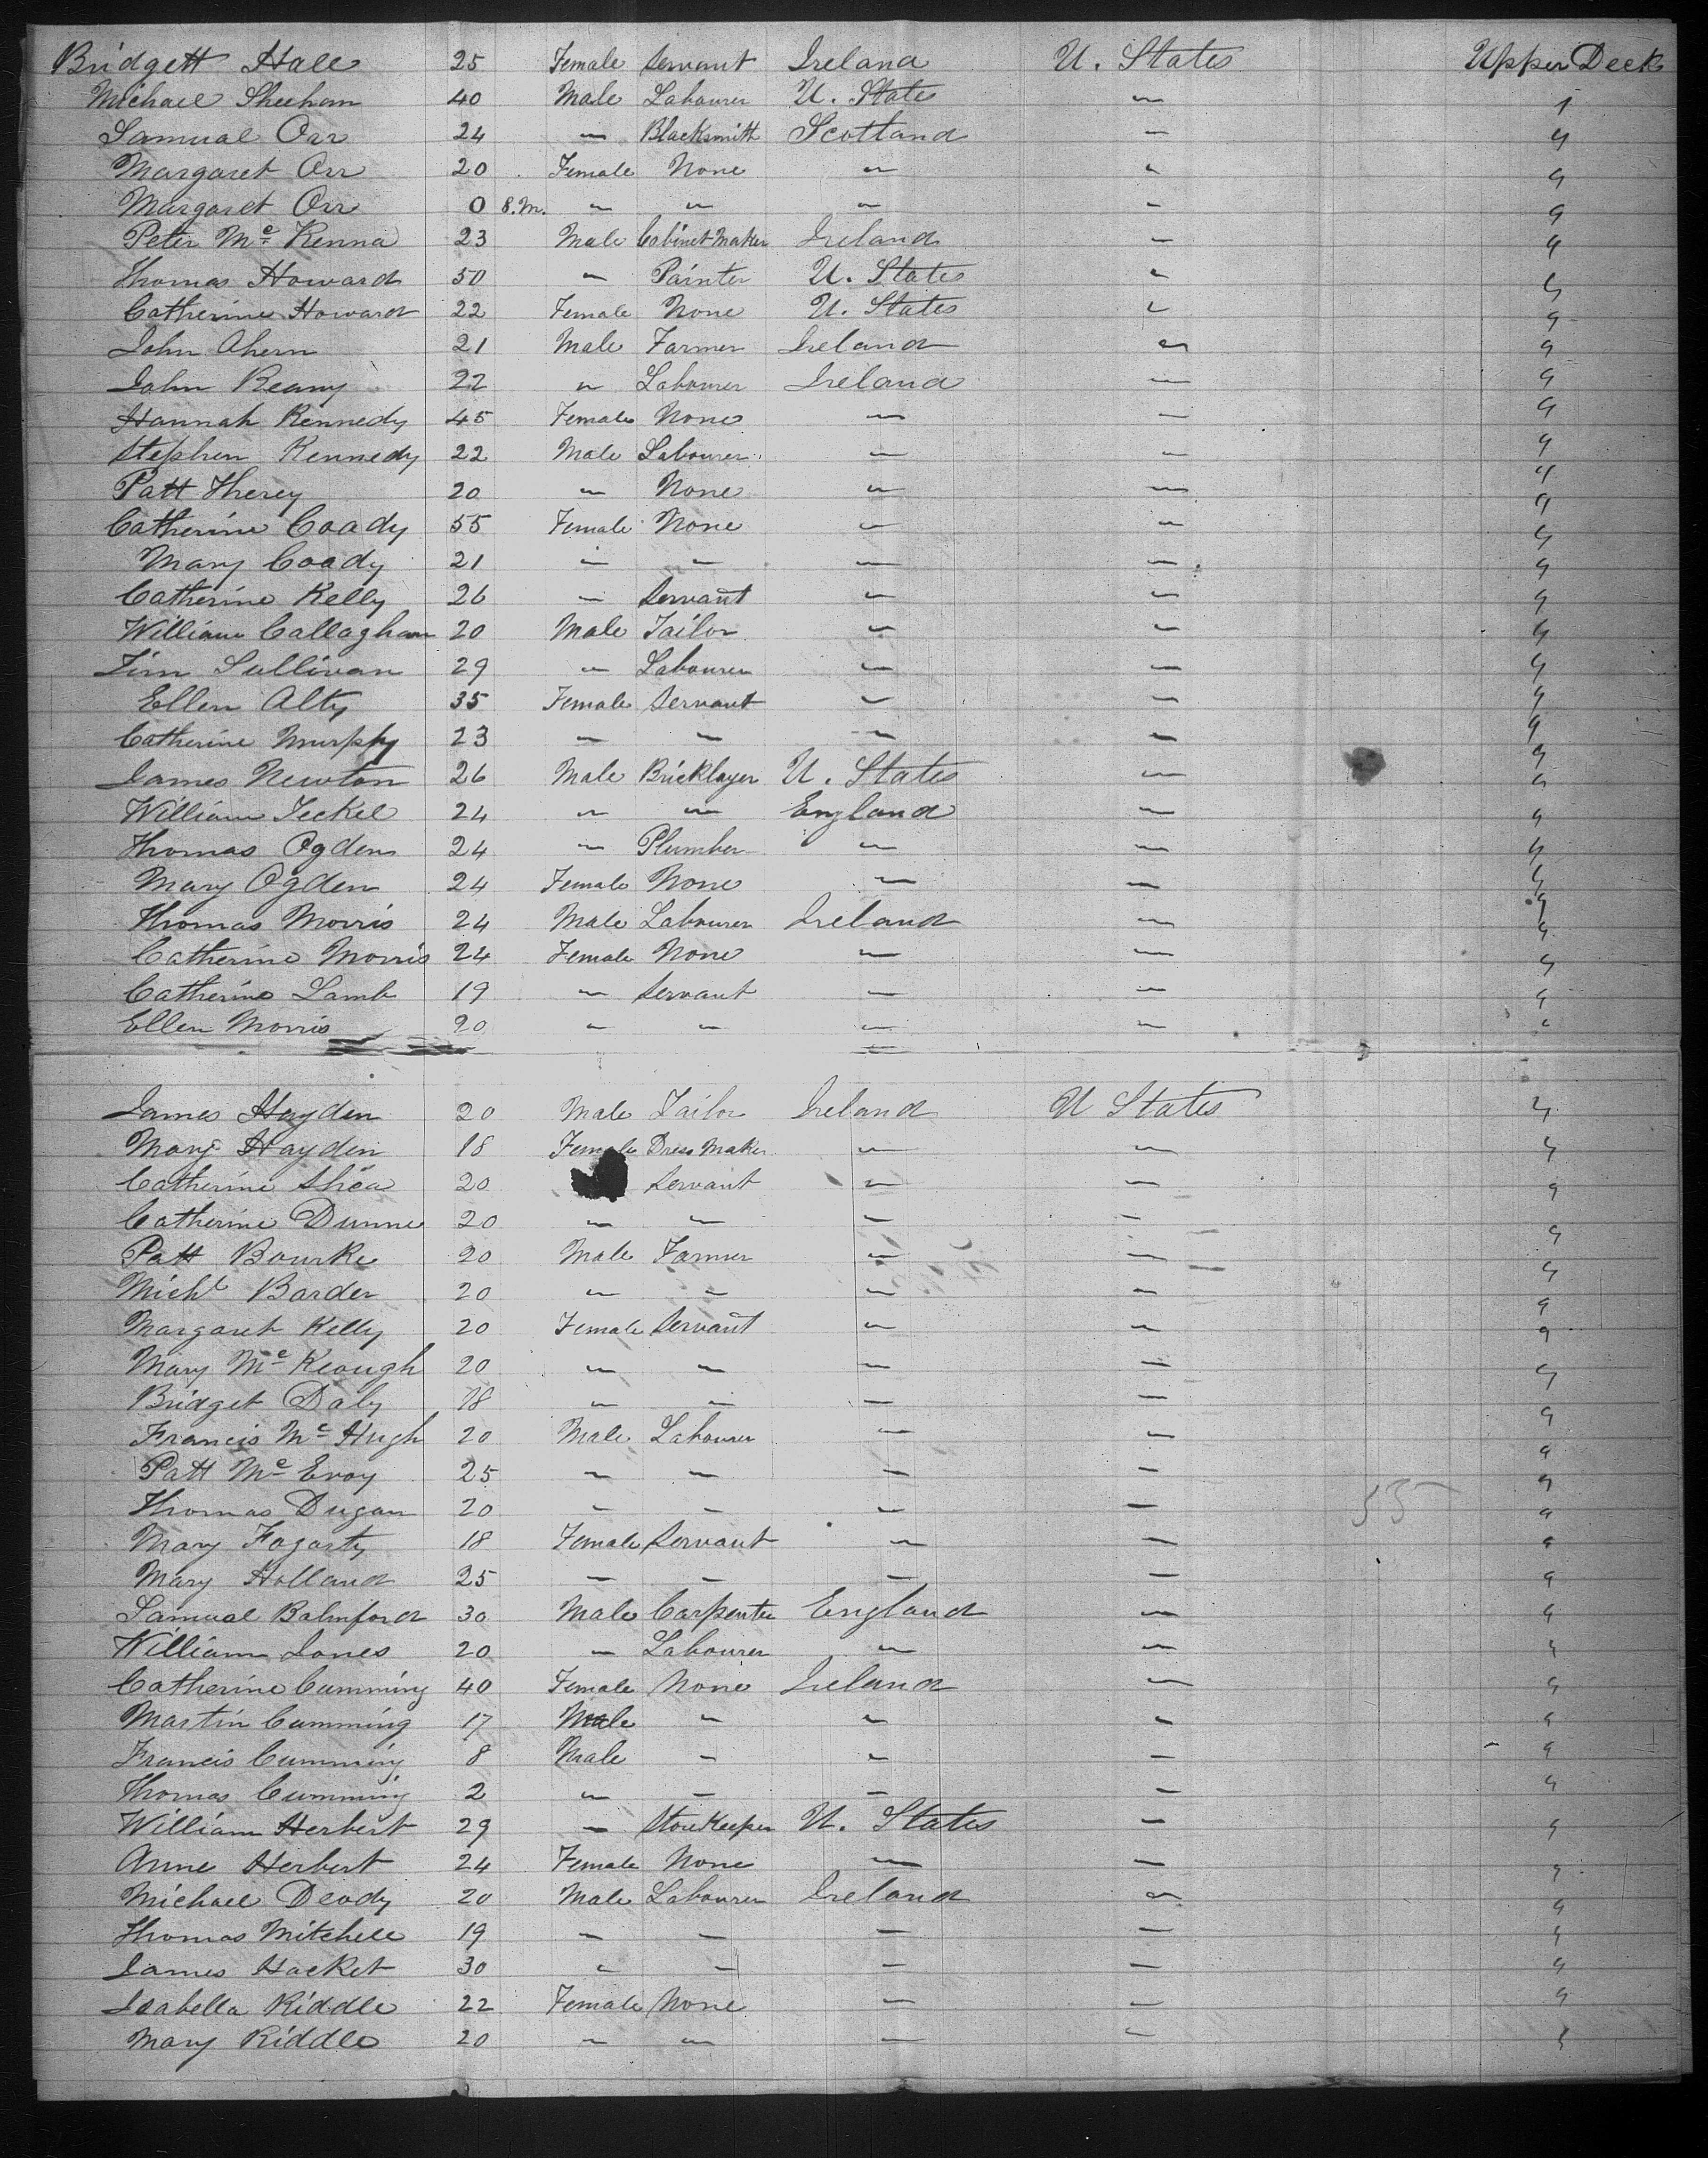 Bridgett Hall 25 Female Servant Ireland U. States Upper Deck
Michael Sheehan 40 Male Labourer U. States " "
Samual Orr 24 " Blacksmith Scotland " "
Margaret Orr 20 Female None " " "
Margaret Orr 0 8.m. " " " " "
Peter Mc Kenna 23 Male Cabinet Maker Ireland " "
Thomas Howard 50 " Painter U. States " "
Catherine Howard 22 Female None U. States " "
John Ahern 21 Male Farmer Ireland " "
John Reany 22 " Labourer Ireland " "
Hannah Kennedy 45 Female None " " "
Stephen Kennedy 22 Male Labourer " " "
Patt 20 " None " " "
Catherine Coady 55 Female None " " "
Mary Coady 21 " " " " "
Catherine Kelly 26 " Servant " " "
William Callaghan 20 Male Tailor " " "
Tim Sullivan 29 " Labourer " " "
Ellen Alty 35 Female Servant " " "
Catherine Murphy 23 " " " " "
James Newton 26 Male Bricklayer U. States " "
William Jeckel 24 " " England " "
Thomas Ogden 24 " Plumber " " "
Mary Ogden 24 Female None " " "
Thomas Morris 24 Male Labourer Ireland " "
Catherine Morris 24 Female None " " "
Catherine Lamb 19 " Servant " " "
Ellen Morris 20 " " " " "
James Hayden 20 Male Tailor Ireland U States "
Mary Hayden 18 Female Dress Maker " " "
Catherine Shea 20 Servant " " "
Catherine Dunne 20 " " " " "
Patt Bourke 20 Male Farmer " " "
Michl Barder 20 " " " " "
Margaret Kelly 20 Female Servant " " "
Mary Mc Keough 20 " " " " "
Bridget Daly 18 " " " " "
Francis Mc Hugh 20 Male Labourer " " "
Patt Mc Evoy 25 " " " " "
Thomas Dugan 20 " " " " 55 "
Mary Fogarty 18 Female Servant " " "
Mary Holland 25 " " " " "
Samual Balmford 30 Male Carpenter England " "
William Jones 20 " Labourer " " "
Catherine Cumming 40 Female None Ireland " "
Martin Cumming 17 Male " " " "
Francis Cumming 8 Male " " " "
Thomas Cumming 2 " " " " "
William Herbert 29 " StoreKeeper U. States " "
Anne Herbert 24 Female None " " "
Michael Deody 20 Male Labourer Ireland " "
Thomas Mitchell 19 " " " " "
James Hacket 30 " " " " "
Isabella Riddle 22 Female None " " "
Mary Riddle 20 " " " " "